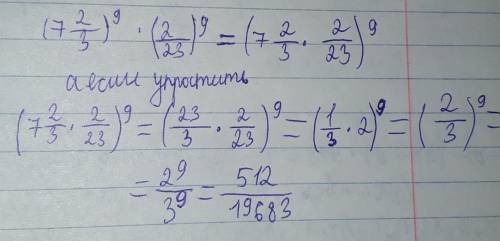 (7 2/3)^9 · (2/23)^9 = (7 2/3 · 2/23)^9
а если упростить
(7 2/3 · 2/23)^9 = (23/3 · 2/23)^9 = (1/3 · 2)^9 = (2/3)^9 =
= 2^9/3^9 = 512/19683